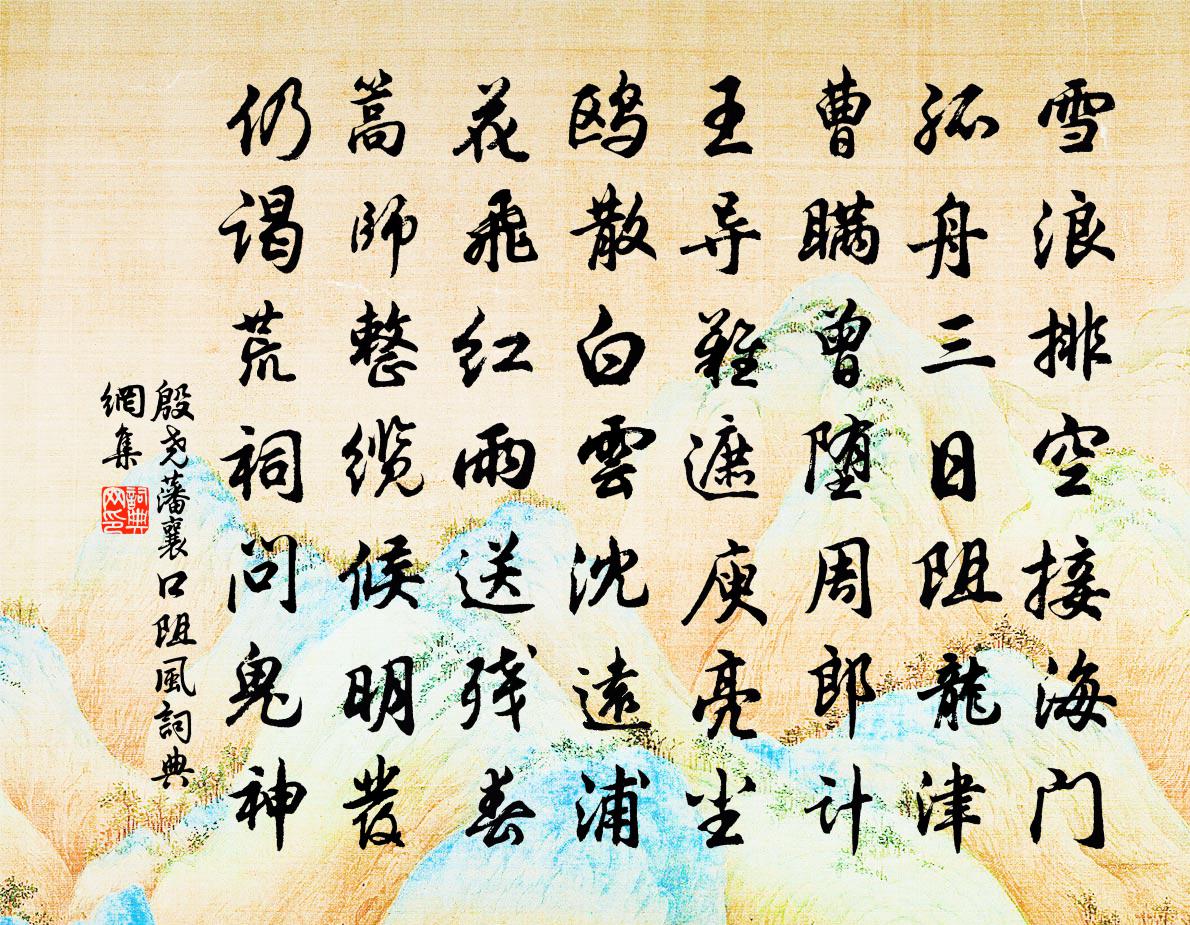 雪浪排空接海门
孤舟三日阻龍津
曹瞞曾堕周郎计
王导難遮庾亮尘
鸥散白雲沈遠浦
花飛红雨送残春
蒿师整缆候明發
仍谒荒祠问鬼神
殷尧藩襄口阻風詞典
網集
詞典
网印